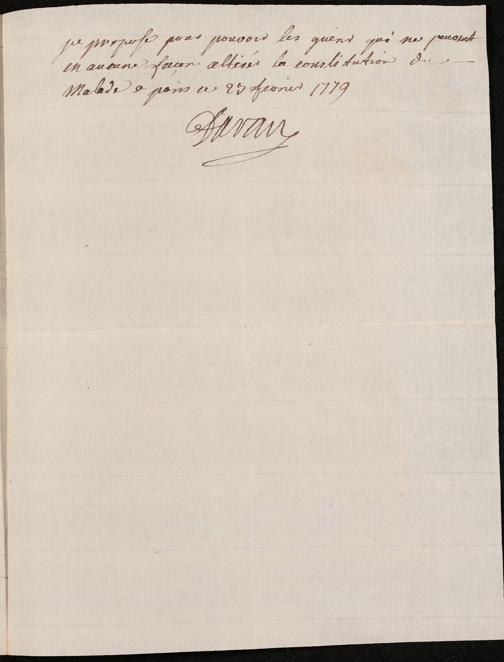 je propose pour pouvoir les guerir qui ne peuvent
en aucune facon alterer la constitution du
Malade a paris ce 23 fevrier 1779